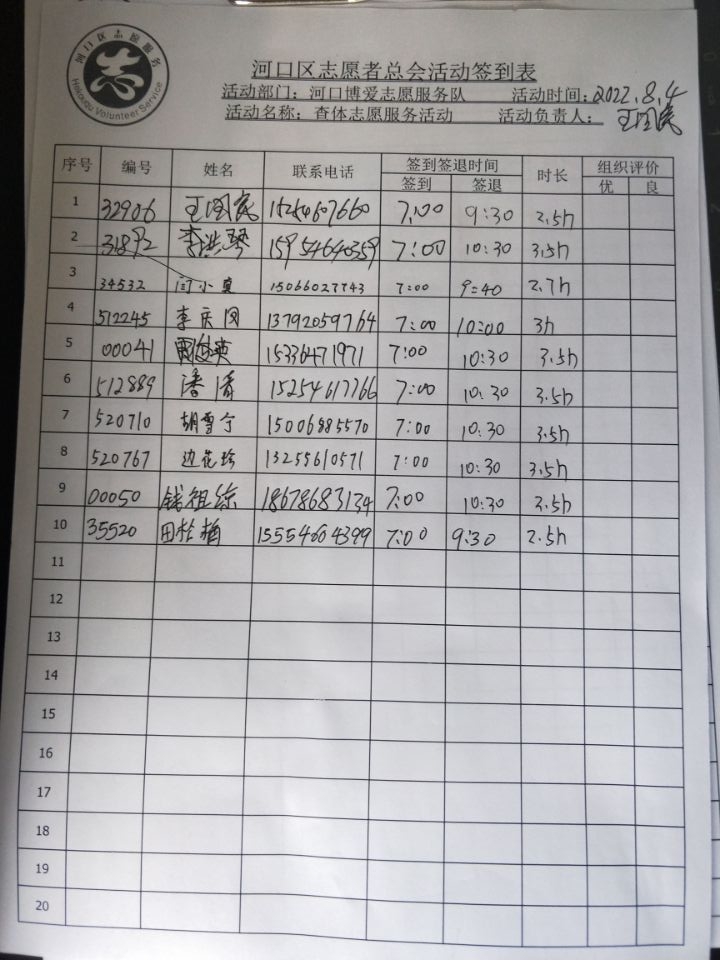 河口区志愿服务
Hekouqu Volunteer Service
河口区志愿者总会活动签到表
活动部门：河口博爱志愿服务队 活动时间：2022.8.4
活动名称：查体志愿服务活动 活动负责人：王国宾
序号 编号 姓名 联系电话 签到签退时间 时长 组织评价
签到 签退 优 良
1 32906 15254607660 7:00 9:30 2.5h
2 31892 李洪琴 15954640359 7:00 10:30 3.5h
3 34532 闫小真 15066027743 7:00 9:40 2.7h
4 512245 李庆国 13792059764 7:00 10:00 3h
5 00041 15336471971 7:00 10:30 3.5h
6 512889 潘 15254617766 7:00 10:30 3.5h
7 520710 胡雪宁 15006885570 7:00 10:30 3.5h
8 520767 边花珍 13255610571 7:00 10:30 3.5h
9 00050 钱祖 18678683134 7:00 10:30 3.5h
10 35520 田 15554604399 7:00 9:30 2.5h
11
12
13
14
15
16
17
18
19
20